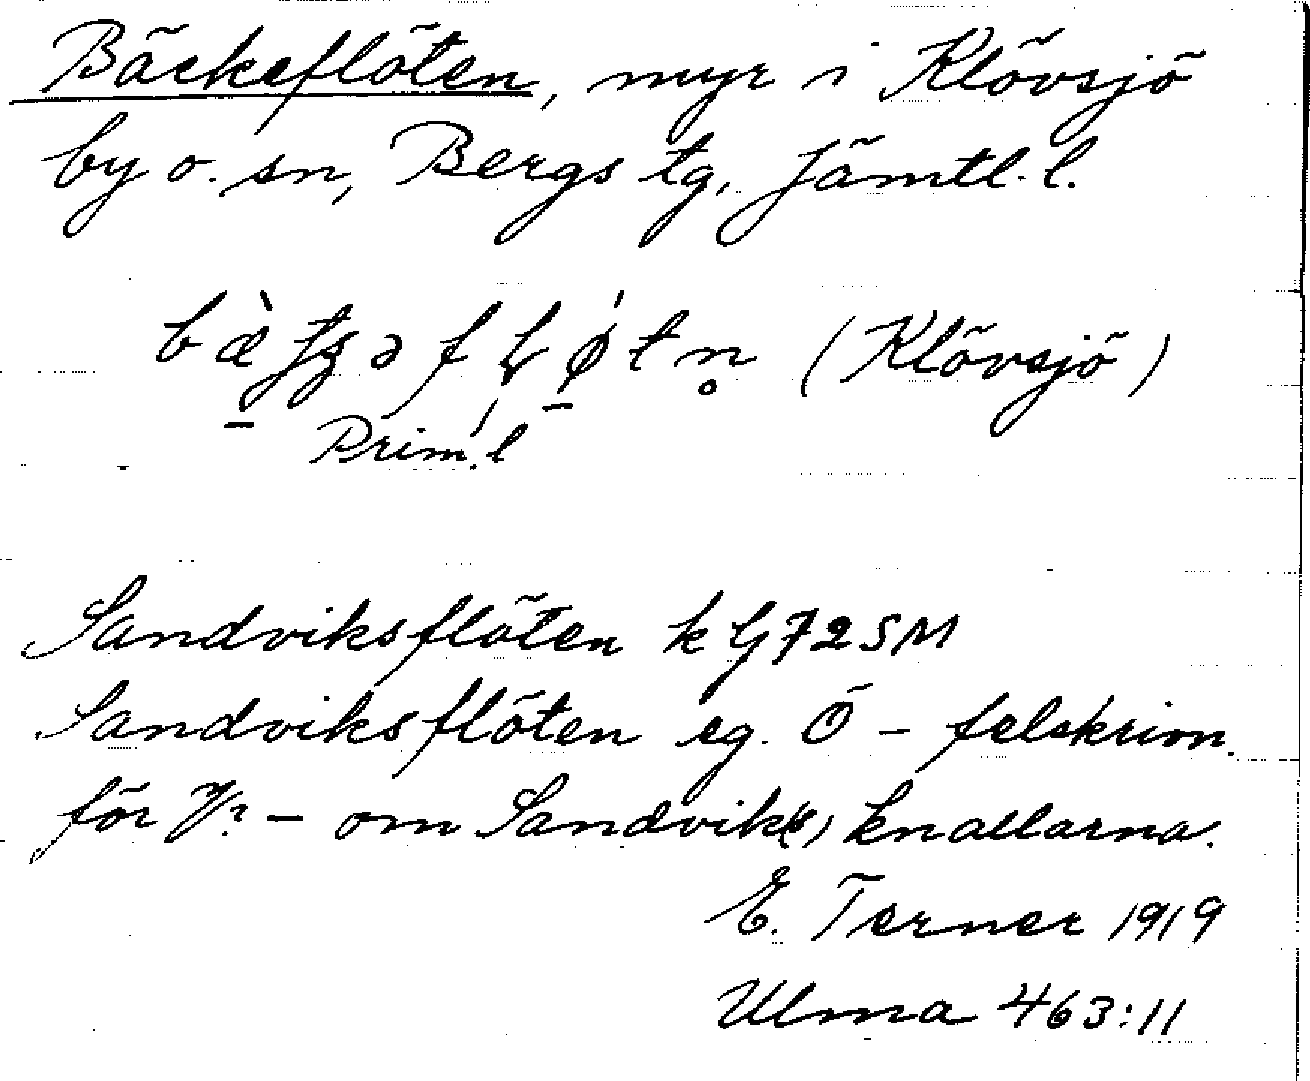 Bäckeflöten, myr i Klövsjö
by o. sn, Bergs tg, Jämtl. l.
(Klövsjö)
Prim. l
Sandviksflöten k G72SM
Sandviksflöten eg. Ö – felskrivn.
för V? – om Sandvik(s)knallarna.
E. Terner 1919
Ulma 463:11